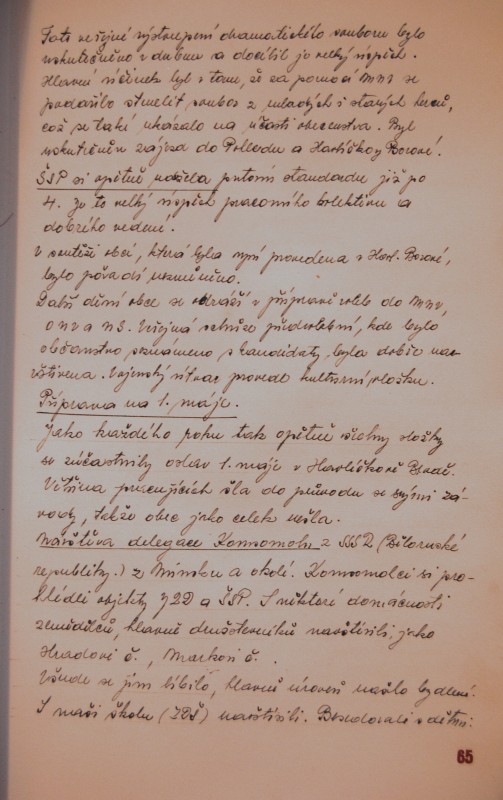 Toto veřejné vystoupení dramatického souboru bylo
uskutečněno v dubnu a docílil jo velký úspěch.
Hlavní účinek byl v tom, že za pomoci MNV se
podařilo stmelit soubor z mladých i starých herců,
což se také ukázalo na účasti obecenstva. Byl
uskutečněn zájezd do Pohledu a Havlíčkovy Borové.
ŠSP si opětně udržela putovní standardu již po
4. Je to velký úspěch pracovního kolektivu a
dobrého vedení.
V soutěži obcí, která byla nyní provedena v Havl. Borové,
bylo pořadí nezměněno.
Další dění obce se odráží v přípravě voleb do MNV,
ONV a NS. Veřejná schůze předvolební, kde bylo
občanstvo seznámeno s kandidáty, byla dobře nav-
štívena. Vojenský útvar provedl kulturní vložku.
Příprava na 1. máje.
Jako každého roku tak opětně všechny složky
se zúčastnily oslav 1. máje v Havlíčkově Brodě.
Většina pracujících šla do průvodu se svými zá-
vody, takže obec jako celek nešla.
Návštěva delegace Komsomolu z SSSR (Běloruské
republiky.) z Minsku a okolí. Komsomolci si pro-
hlédli objekty JZD a ŠSP. I některé domácnosti
zemědělců, hlavně družstevníků navštívili, jako
Hradovi č. , Markovi č. .
Všude se jim líbilo, hlavně úroveň našeho bydlení.
I naši školu (ZDŠ) navštívili. Besedovali s dětmi.
65